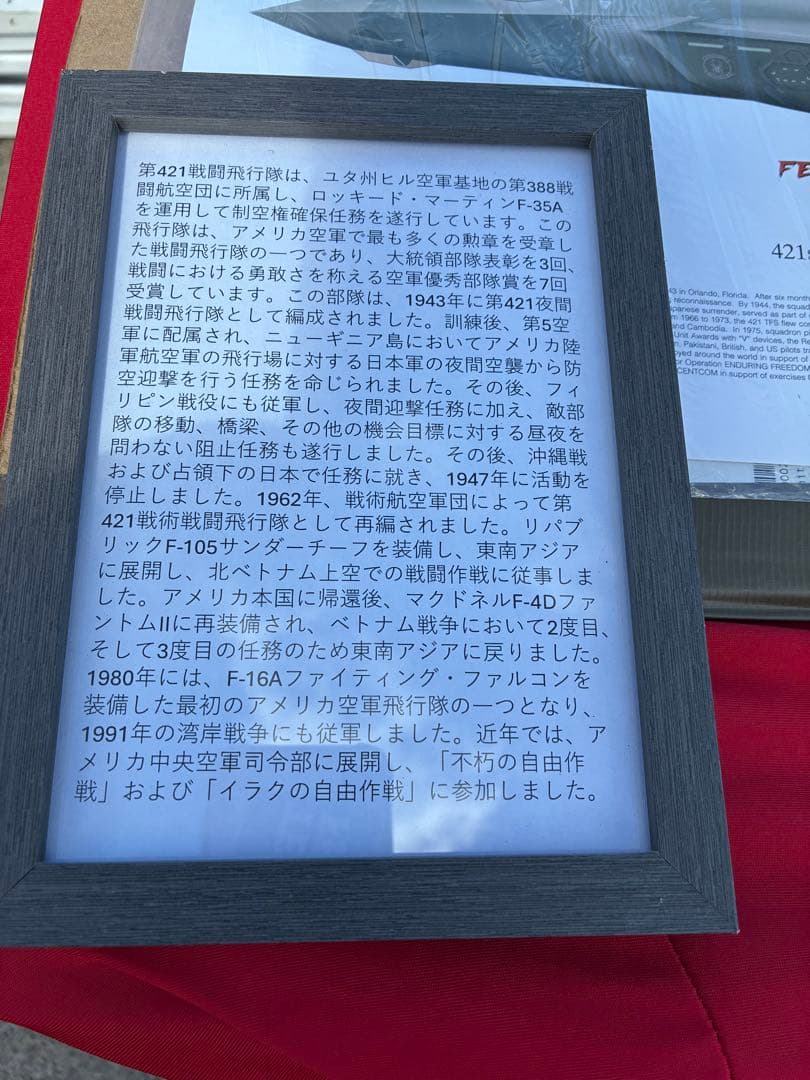 第421戦闘飛行隊は、ユタ州ヒル空軍基地の第388戦
闘航空団に所属し、ロッキード・マーティンF-35A
を運用して制空権確保任務を遂行しています。この
飛行隊は、アメリカ空軍で最も多くの勲章を受章し
た戦闘飛行隊の一つであり、大統領部隊表彰を3回、
戦闘における勇敢さを称える空軍優秀部隊賞を7回
受賞しています。この部隊は、1943年に第421夜間
戦闘飛行隊として編成されました。訓練後、第5空
軍に配属され、ニューギニア島においてアメリカ陸
軍航空軍の飛行場に対する日本軍の夜間空襲から防
空迎撃を行う任務を命じられました。その後、フィ
リピン戦役にも従軍し、夜間迎撃任務に加え、敵部
隊の移動、橋梁、その他の機会目標に対する昼夜を
問わない阻止任務も遂行しました。その後、沖縄戦
および占領下の日本で任務に就き、1947年に活動を
停止しました。1962年、戦術航空軍団によって第
421戦術戦闘飛行隊として再編されました。リパブ
リックF-105サンダーチーフを装備し、東南アジア
に展開し、北ベトナム上空での戦闘作戦に従事しま
した。アメリカ本国に帰還後、マクドネルF-4Dファ
ントムIIに再装備され、ベトナム戦争において2度目、
そして3度目の任務のため東南アジアに戻りました。
1980年には、F-16Aファイティング・ファルコンを
装備した最初のアメリカ空軍飛行隊の一つとなり、
1991年の湾岸戦争にも従軍しました。近年では、ア
メリカ中央空軍司令部に展開し、「不朽の自由作
戦」および「イラクの自由作戦」に参加しました。
FE
421s
43 in Orlando, Florida. After six month
reconnaissance. By 1944, the squad
panese surrender, served as part of
m 1966 to 1973, the 421 TFS flew com
and Cambodia. In 1975, squadron p
Unit Awards with "V" devices, the Re
n, Pakistani, British, and US pilots tra
oyed around the world in support of
or Operation ENDURING FREEDOM
CENTCOM in support of exercises